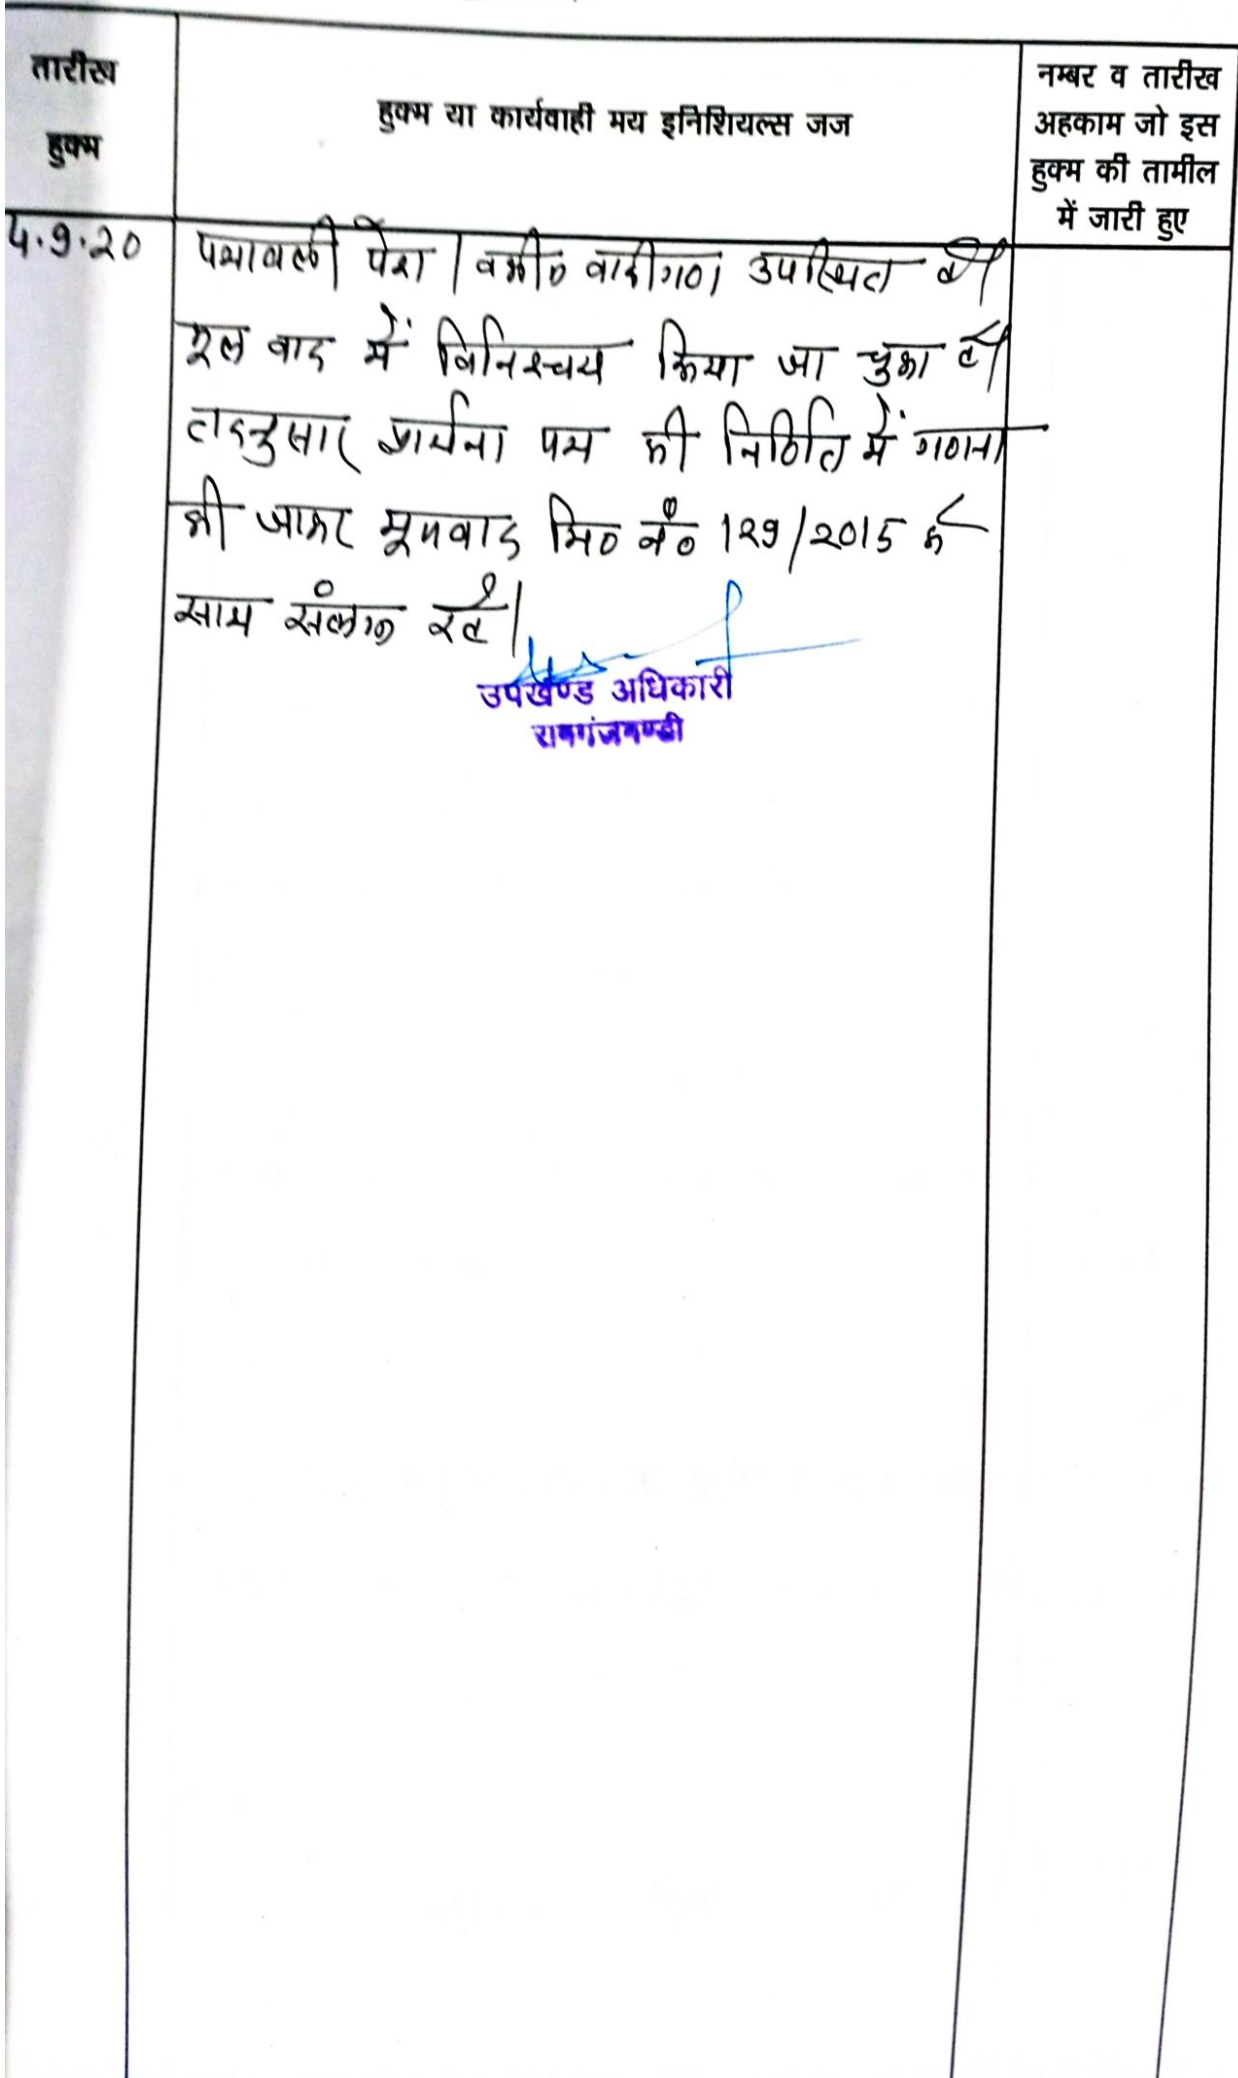 तारीख
हुक्म
हुक्म या कार्यवाही मय इनिशियल्स जज
नम्बर व तारीख
अहकाम जो इस
हुक्म की तामील
में जारी हुए
4.9.20
पत्रावली पेश। वकील वादीगण उपस्थित है।
मूल वाद में विनिश्चय किया जा चुका है।
तदनुसार प्रार्थना पत्र की निर्णित में गणना
की जाकर मूलवाद मि० नं० 129/2015 के
साथ संलग्न रहे।
उपखण्ड अधिकारी
रामगंजमण्डी